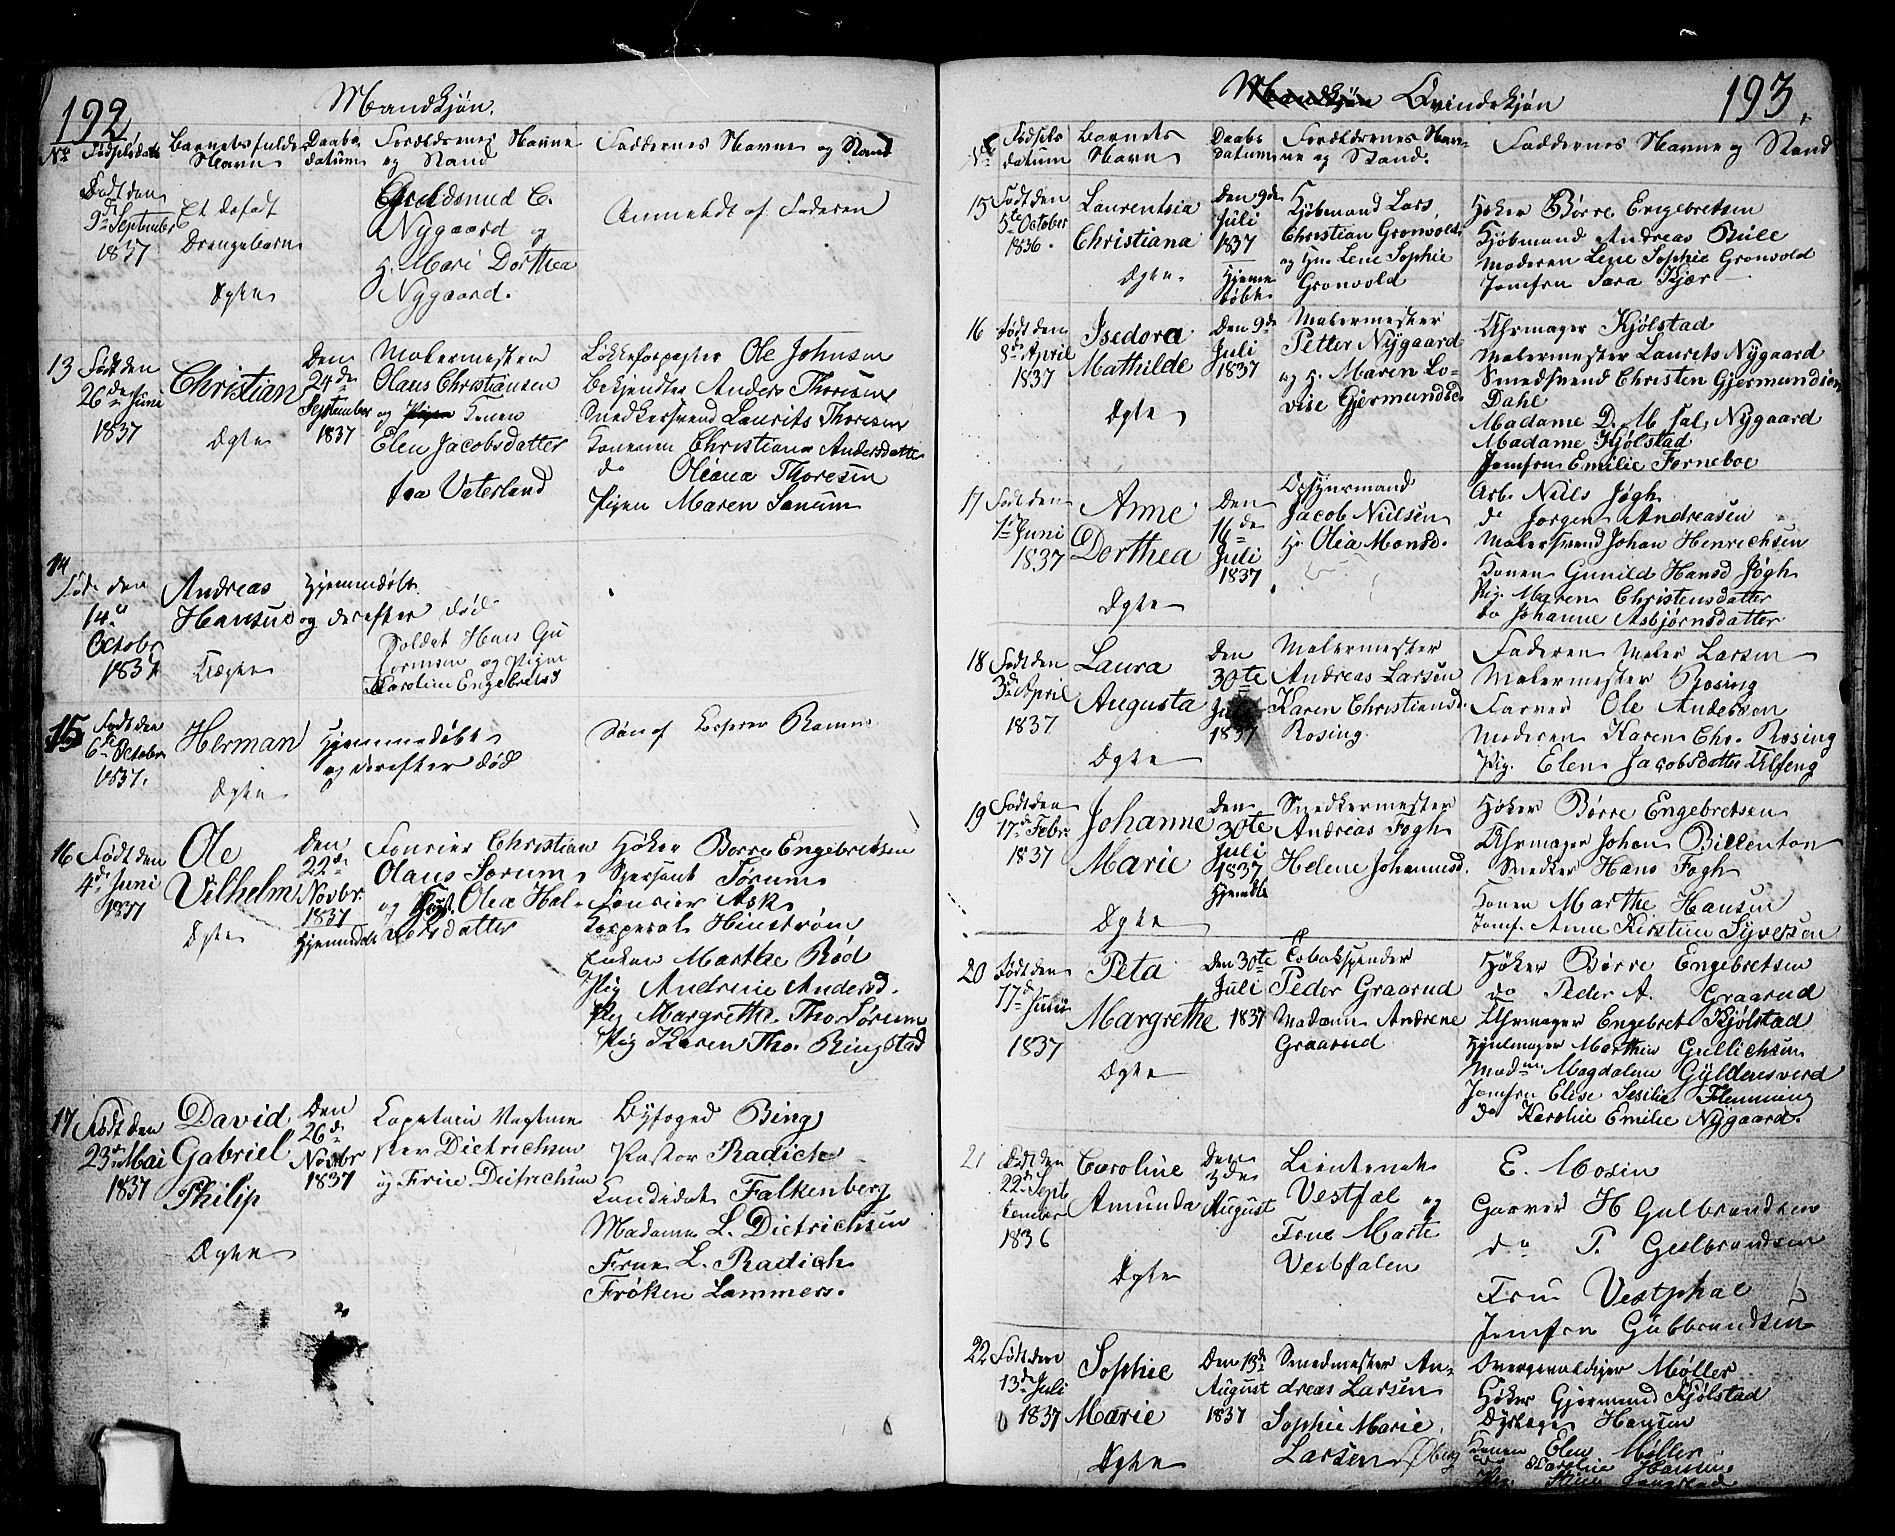 192
Mandkjøn.
No Fødselsdato
Barnets fulde Navn
Daabsdatum
Forældrenes Navne og Stand
Faddernes Navne og Stand
Født den
9de September
1837
Et dødfødt
Drengebarn
Ægte
Guldsmed C.
Nygaard og
H. Mari Dorthea
Nygaard.
Anmeldt af Faderen
13 Født den
26de Juni
1837
Christian
Ægte
Den
24de
September
1837
Malermester
Olaus Christiansen
og Pigen Konen
Elen Jacobsdatter
fra Vaterland
Løkkeforpagter Ole Johnsen
Bekjendter Anders Thoresen
Snedkersvend Laurits Thoresen
Konerne Christiana Andersdatter
do Oliana Thoresen
Pigen Maren Sanum
14
Født den
14de
October
1837
Andreas
Hansen
Uægte
Hjemmedøbt
og derefter død
Soldat Hans Gu
tormsen og Pigen
Karoline Engebretsd
15 Født den
6te October
1837.
Herman
Ægte
Hjemmedøbt
og derefter død
Søn af Casper Ramm
16 Født den
4de Juni
1837
Ole
Vilhelm
Ægte
Den
22de
Novbr
1837
Hjemmedøbt
Fourier Christian
Olaus Sørum
og Olea Hal-
vorsdatter
Høker Børre Engebretsen
Sersant Sørum
Fourier Ask
Corporal Hinstrøm
Enken Marthe Rød
Pig Andrine Andersd.
Pig Margrethe Thor Sørum
Pig Karen Tho. Ringstad
17 Født den
23de Mai
1837
David
Gabriel
Philip
Ægte
Den
26de
Novbr
1837
Capetain Vagtme
ster Dietrichsen
og Frue Dietrichsen
Byfoged Bing
Pastor Radich
Candidat Falkenberg
Madame L. Dietrichsen
Frue L. Radich
Frøken Lammers.
193.
Mandkjøn Qvindekjøn
No
Fødsels
datum
Barnets
Navn
Daabs
datum
Forældrenes Nav-
ne og Stand.
Faddernes Navne og Stand
15 Født den
5te October
1836.
Laurentsia
Christiana
Ægte
Den 9de
Juli
1837
Hjemme
døbt
Kjøbmand Lars
Christian Grønvold
og Hu. Lene Sophie
Gronvold
Høker Børre Engebretsen
Kjøbmand Andreas Bule
Moderen Lene Sophie Gronvold
Jomfru Sara Kjær
16 Født den
8de April
1837
Isedora
Mathilde
Ægte
Den 9de
Juli
1837
Malermester
Petter Nygaard
og H. Maren Lo-
vise Gjermundsen
Uhrmager Kjølstad
Malermester Laurits Nygaard
Smedsvend Christen Gjermundsen
Dahl
Madame D. M sal. Nygaard
Madame Kjølstad
Jomfru Emilie Forneboe
17 Født den
1ste Juni
1837
Anne
Dorthea
Ægte
Den
16de
Juli
1837
Opsynsmand
Jacob Nielsen
H. Olia Monsd.
Arb. Niels Jøgh
do Jorgen Andreasen
Malersvend Johan Henrichsen
Konen Gunild Hansd Jøgh
Pig. Maren Christensdatter
do Johanne Asbjørnsdatter
18 Født den
3de April
1837
Laura
Augusta
Ægte
Den
30te
Juli
1837
Malermester
Andreas Larsen
Karen Christiansd.
Rosing
Faderen Maler Larsen
Malermester Rosing
Farver Ole Andersen
Moderen Karen Chr. Rosing
Pig. Elen Jacobsdatter Ulfeng
19 Født den
17de Febr.
1837
Johanne
Marie
Ægte
Den
30te
Juli
1837
Hjemdbt
Snedkermester
Andreas Fogh
Helene Johannesd.
Høker Børre Engebretsen
Uhrmager Johan Billenton
Snedker Hans Fogh
Konen Marthe Hansen
Jomf. Anne Kirstine Syversen
20 Født den
17de Juli
1837
Peta
Margrethe
Ægte
Den 30te
Juli
1837
Tobakspinder
Peder Graarud
Madame Andrene
Graarud
Høker Børre Engebretsen
do Peder A. Graarud
Uhrmager Engebret Kjølstad
Hjulmager Marthin Gullichsen
Madm. Magdalene Gyldensverd
Jomfru Elise Sesilie Flemming
do Karolie Emilie Nygaard.
21 Født den
22de Sept
tember
1836
Caroline
Amunda
Ægte
Den
3de
August
Lieutenat
Vestfal og
Frue Marte
Vestfalen
E. Mosin
Garver H Gulbrandsen
do P. Gulbrandsen
Frue Vestphal
Jomfru Gubbrandsen
22 Født den
13de Juli
1837
Sophie
Marie
Ægte
Den 13de
August
1837
Smedmester An-
dreas Larsen
Sophie Marie
Larsen Øberg
Overgevaldiger Møller
Høker Gjermund Kjølstad
Dyrlæge Hansen
Konen Elen Møller
do Karoline Hansen